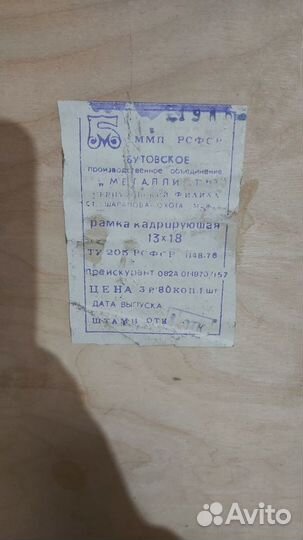 ММП РСФСР
БУТОВСКОЕ
производственное объединение
„МЕТАЛЛИ
ФИЛИАЛ
СТ. ШАРАПОВА-ОХОТА
рамка кадрирующая
13х18
ТУ 205 РСФСР 1148-76
прейскурант 082А 041970/157
ЦЕНА 3 Р 80 КОП. 1 шт
ДАТА ВЫПУСКА
ШТАМП ОТК
ОТК
Avito